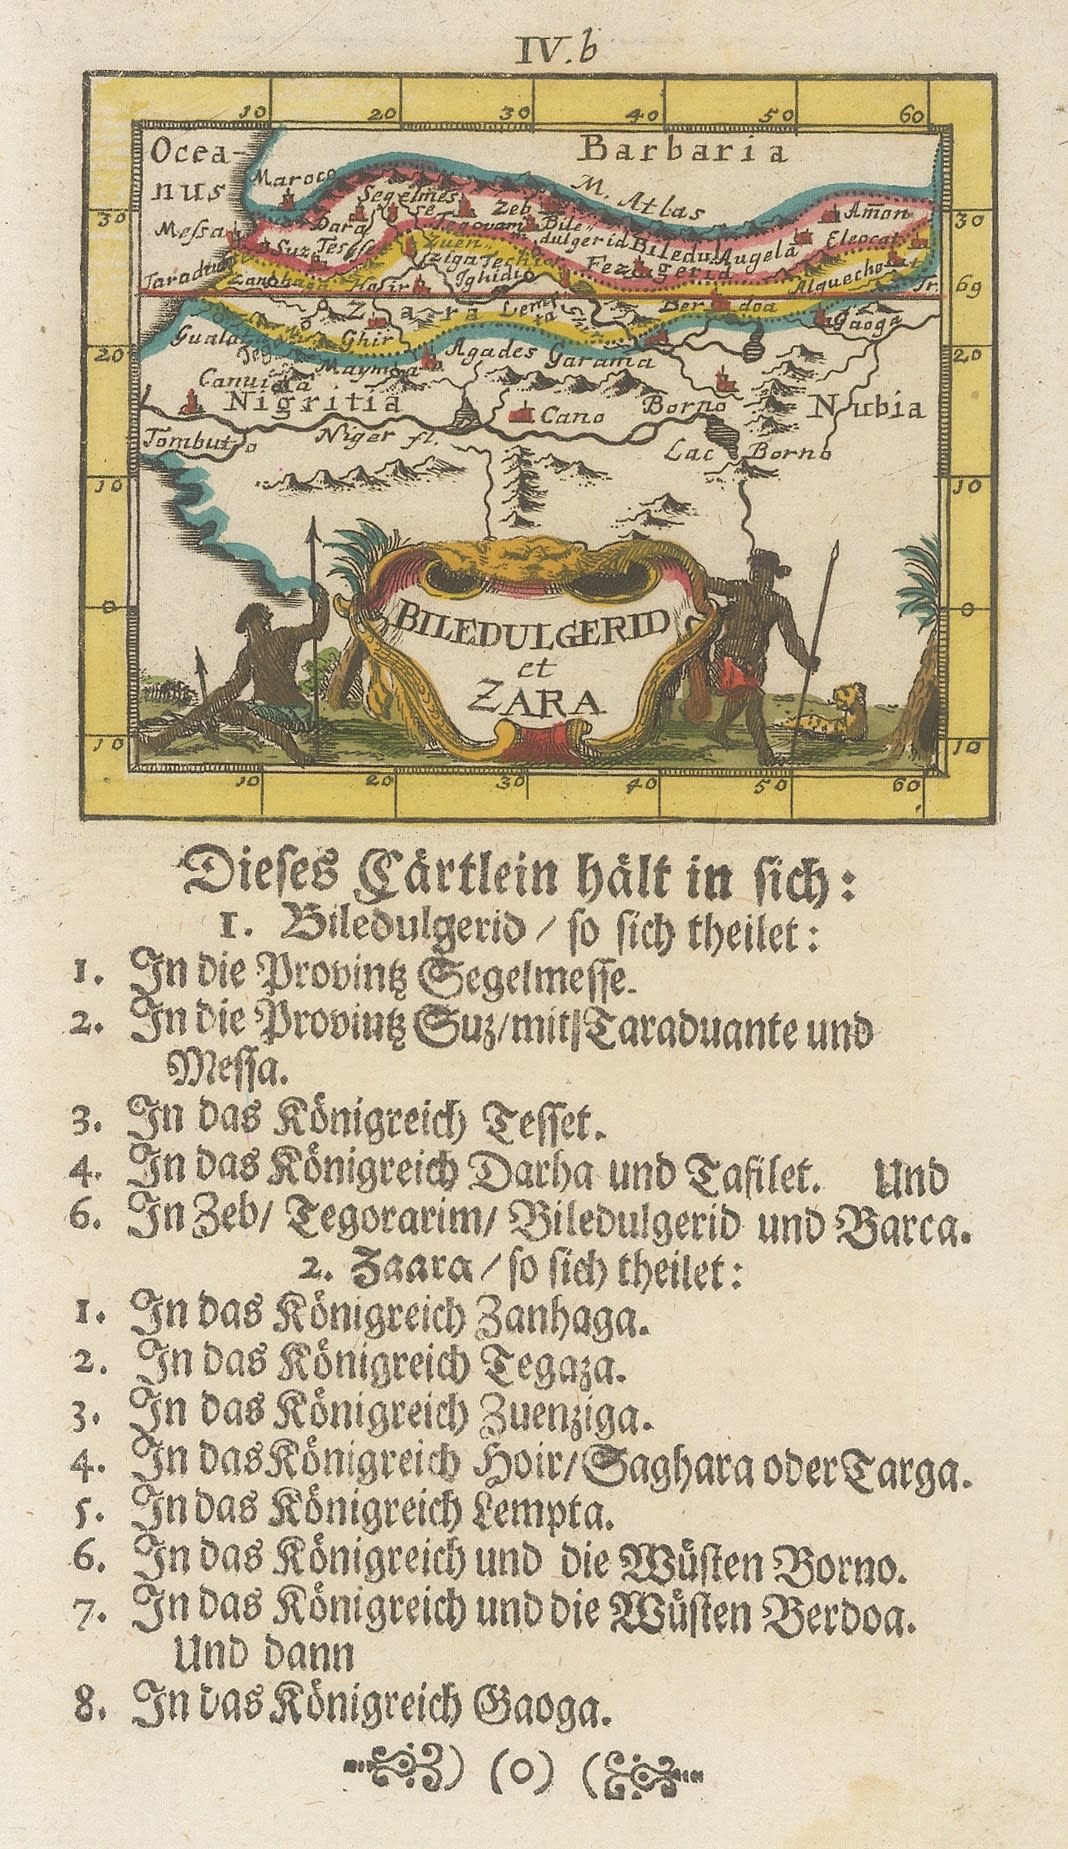 IV.b
10 20 30 40 50 60
Ocea-
nus
Barbaria
Maroco
M. Atlas
30
30
Segelmes
se
Zeb
Amon
Messa
Dara
Bile-
dulgerid
Biledu
Augela
Eleocat
Suz
Tesset
Zuen-
ziga
Techia
Fez
gerid
Taradu
Zanhaga
Hasir
Ighidi
Alquechet
Tr.
69
Zaara
Lemp
ta
Berdoa
Gaoga
20
20
Gualata
Ghir
Agades
Garama
Canuiga
Nigritia
Cano
Borno
Nubia
Tombuto
Niger fl.
Lac Borno
10
10
0
0
BILEDULGERID
et
ZARA
10
10
10 20 30 40 50 60
Dieses Cärtlein hält in sich:
1. Biledulgerid / so sich theilet:
1. In die Provintz Segelmesse.
2. In die Provintz Suz/mit Taraduante und
Messa.
3. In das Königreich Tesset.
4. In das Königreich Darha und Tafilet. Und
6. In Zeb/ Tegorarim/ Biledulgerid und Barca.
2. Zaara / so sich theilet:
1. In das Königreich Zanhaga.
2. In das Königreich Tegaza.
3. In das Königreich Zuenziga.
4. In das Königreich Hoir/Saghara oder Targa.
5. In das Königreich Lempta.
6. In das Königreich und die Wüsten Borno.
7. In das Königreich und die Wüsten Berdoa.
Und dann
8. In das Königreich Gaoga.
) (o) (